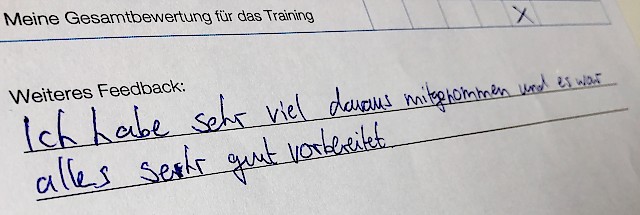 Meine Gesamtbewertung für das Training X
Weiteres Feedback:
Ich habe sehr viel daraus mitgenommen und es war
alles sehr gut vorbereitet.